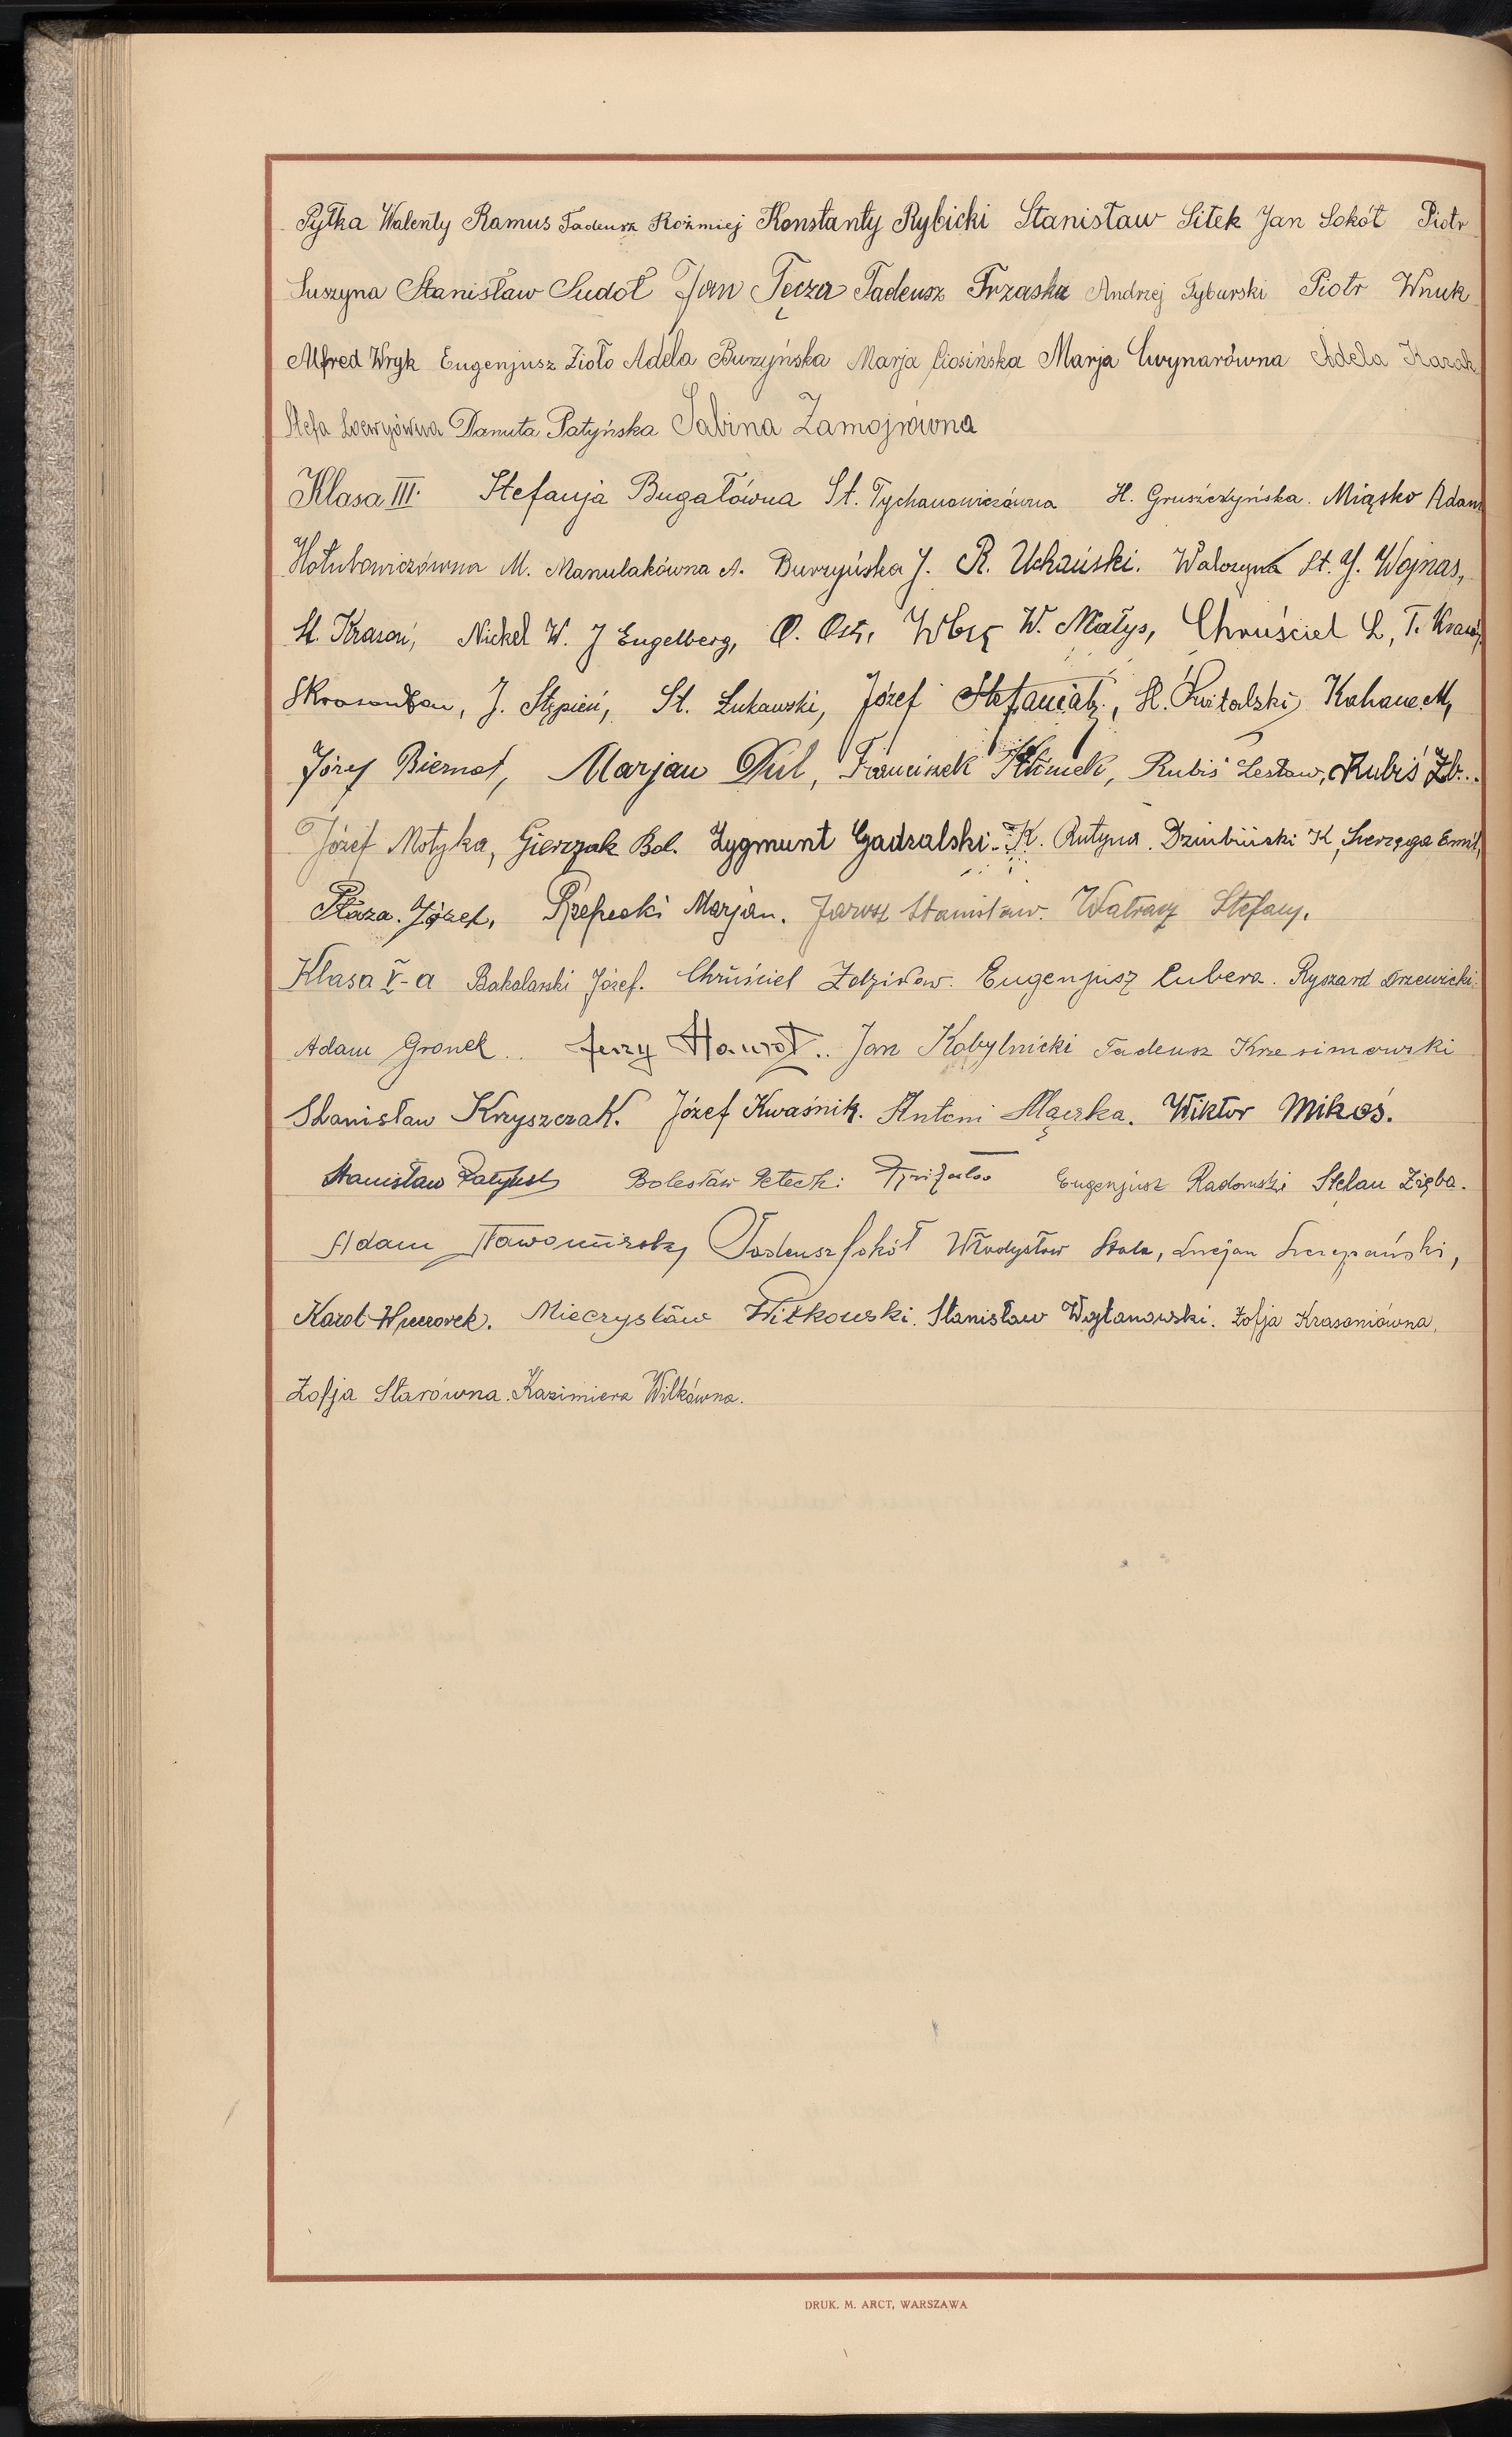 Pytka Walenty Ramus Tadeusz Rożmiej Konstanty Rybicki Stanisław Sitek Jan Sokół Piotr
Suszyna Stanisław Sudoł Jan Tęcza Tadeusz Trzaska Andrzej Tyburski Piotr Wnuk
Alfred Wryk Eugenjusz Zioło Adela Burzyńska Marja Ciosińska Marja Cwynarówna Adela Kazak
Stefa Danuta Patyńska Sabina Zamojrówna
Klasa III. Stefanja Bugałówna St. Tychanowiczówna H. Gruszczyńska. Miąsko Adam
Hołubowiczówna M. Manulakówna A. Burzyńska J. R. Uchański. Waloszyna St. J. Wojnas,
St. Krasoń, Nickel W. J Engelberg, O. W. Małys, Chruściel L, T.
J. Stępień, St. Łukawski, Józef Stefaniak, Kahane M,
Józef Biernat, Marjan Dul, Franciszek Klimek, Rubiś Lesław, Rubiś Zb..
Józef Motyka, Gierczak Bol. Zygmunt Gadzalski. K. Rutyna. K, Szczęga Emil,
Płaza. Józef, Rzepecki Marjan. Jarosz Stanisław. Watracz Stefan.
Klasa V-a Bakalarski Józef. Chruściel Zdzisław. Eugenjusz Cubera. Ryszard Drzewicki
Adam Gronek.. Jerzy Hawrot.. Jan Kobylnicki Tadeusz Krzesimowski
Stanisław Kryszczak. Józef Kwaśnik. Antoni Mączka. Wiktor Mikoś.
Stanisław Bolesław Petecki Eugenjusz Radomski Stefan Zięba.
Adam Sławomirski Tadeusz Sokół Władysław Stala, Lucjan Szczepański,
Karol Wieczorek. Mieczysław Witkowski. Stanisław Wojtanowski. Zofja Krasoniówna.
Zofja Starówna. Kazimiera Wilkówna.
DRUK. M. ARCT, WARSZAWA